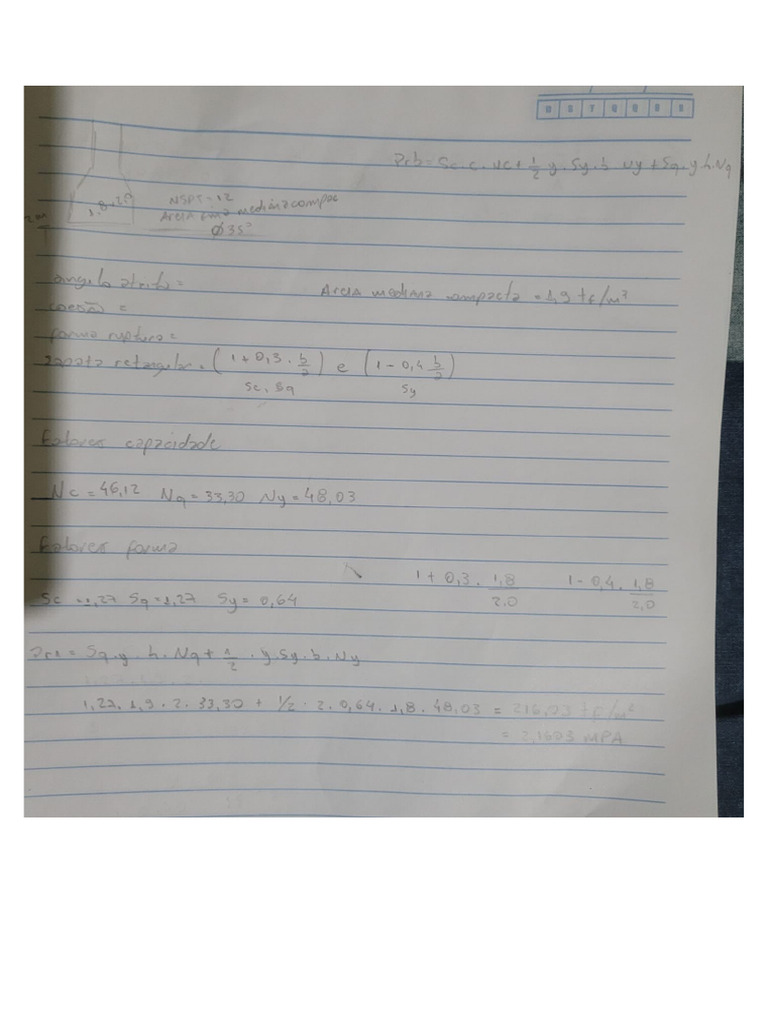 D S T Q Q S S
Prb = Sc.c.Nc + 1/2 y.Sy.b Ny + Sq.y h.Nq
NSPT = 12
1,8x2,0
Areia fina median compac
2m
Ø 35°
angulo atrito =
Areia mediana compacta = 1,9 tf/m³
coesão =
forma ruptura =
sapata retangular = (1 + 0,3 . b/a) e (1 - 0,4 b/a)
Sc, Sq
Sy
Fatores capacidade
Nc = 46,12 Nq = 33,30 Ny = 48,03
Fatores forma
1 + 0,3 . 1,8/2,0 1 - 0,4 . 1,8/2,0
Sc = 1,27 Sq = 1,27 Sy = 0,64
= Sq.y h.Nq + 1/2 . y.Sy.b.Ny
1,27. 1,9 . 2 . 33,30 + 1/2 . 2 . 0,64 . 1,8 . 48,03 = 216,03 tf/m²
= 2,1603 MPA